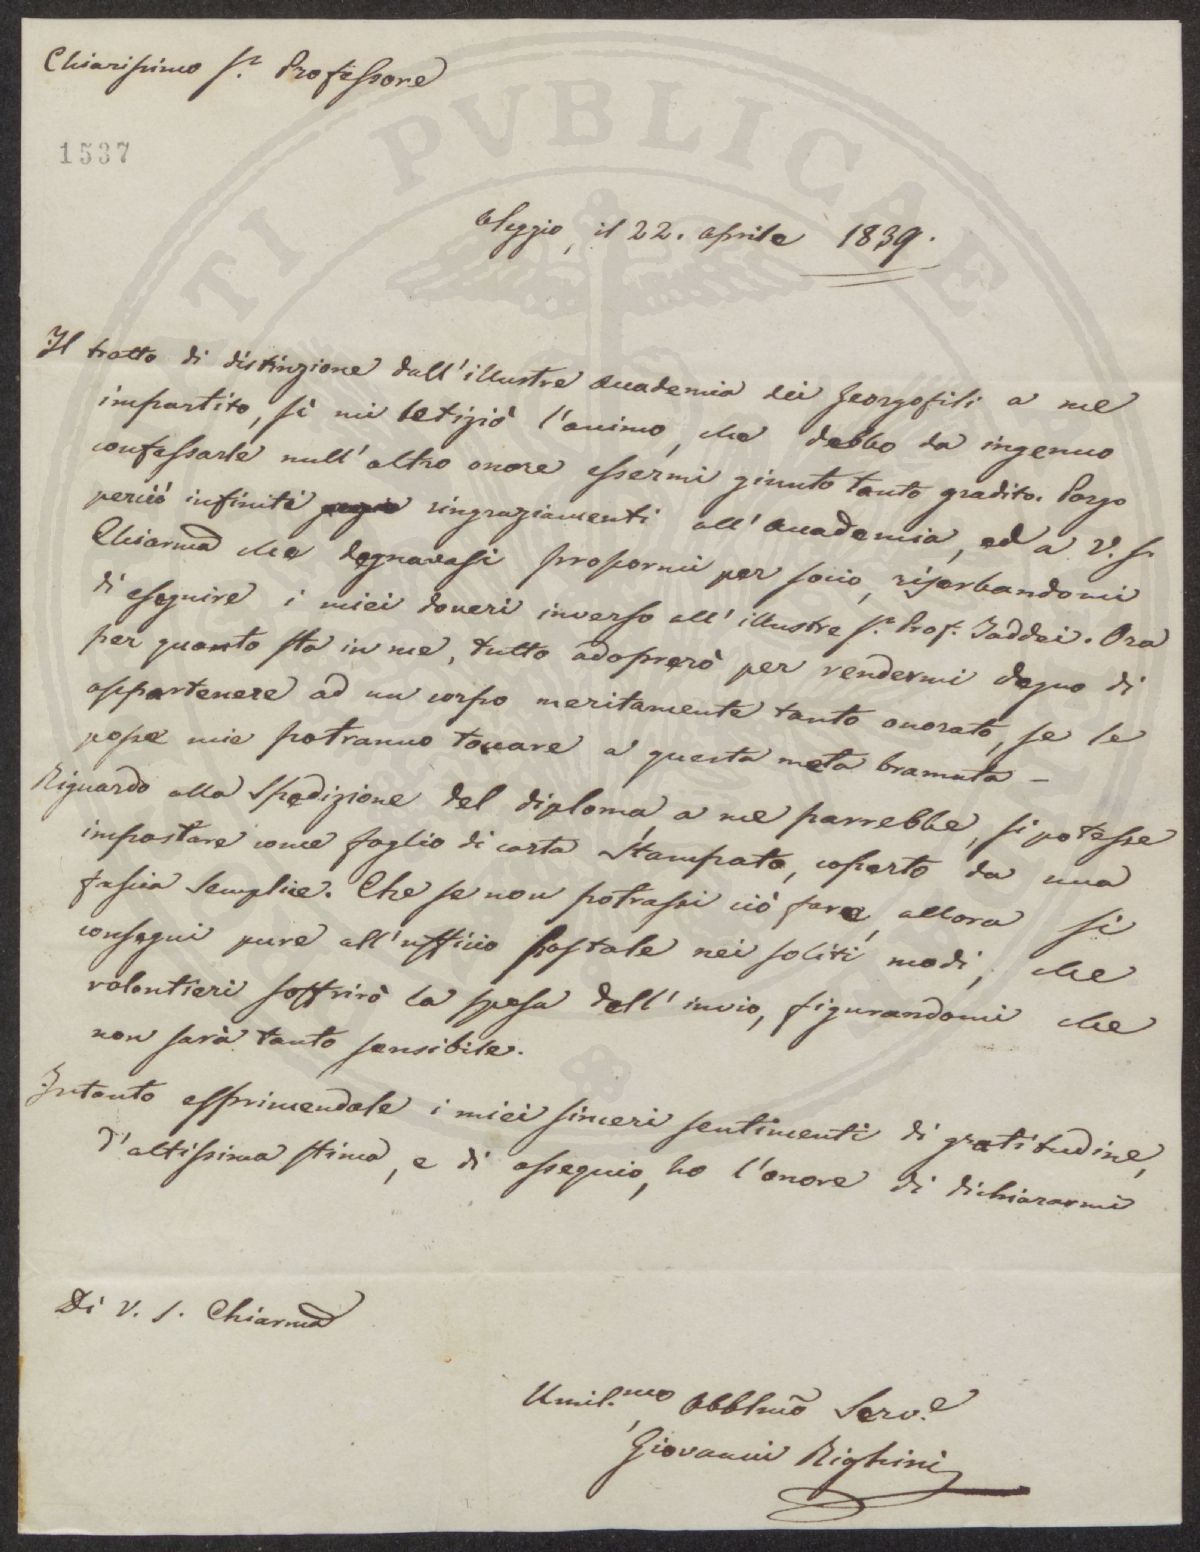 Chiarissimo Sr. Professore
1537
Oleggio, il 22. Aprile 1839.
Il tratto di distinzione dall'illustre Accademia dei Georgofili a me
impartito, sì mi letiziò l'animo, che debbo da ingenuo
confessarle null'altro onore essermi giunto tanto gradito. Porgo
perciò infiniti ringraziamenti all'Accademia, ed a V. S.
Chiarma che degnavasi propormi per socio, riserbandomi
di eseguire i miei doveri inverso all'illustre Sr. Prof. Taddei. Ora
per quanto sta in me, tutto adoprerò per rendermi degno di
appartenere ad un corpo meritamente tanto onorato, se le
posse mie potranno toccare a questa meta bramata -
Riguardo alla spedizione del diploma, a me parrebbe, si potesse
impostare come foglio di carta stampata, coperto da una
fascia semplice. Che se non potrassi ciò fare, allora si
consegni pure all'ufficio postale nei soliti modi, che
volontieri soffrirò la spesa dell'invio, figurandomi che
non sarà tanto sensibile.
Intanto esprimendole i miei sinceri sentimenti di gratitudine,
d'altissima stima, e di ossequio, ho l'onore di dichiararmi
Di V. S. Chiarma
Umil.mo Obblmo Serv.e
Giovanni Righini
TI PVBLICAE